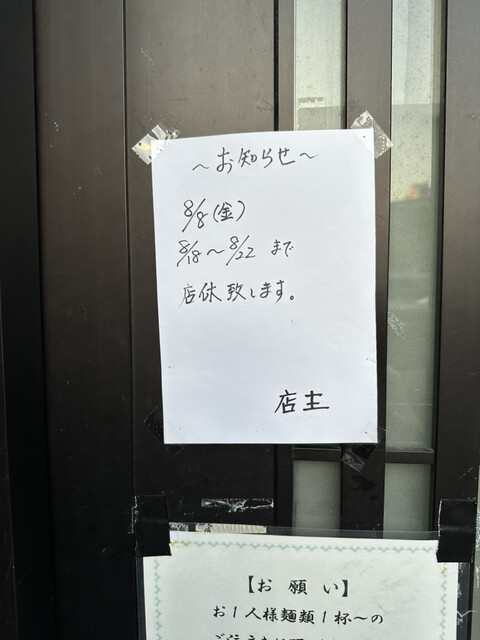 ～お知らせ～
8/8(金)
8/18～8/22 まで
店休致します。
店主
【お願い】
お1人様麺類1杯～の